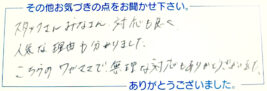 その他お気づきの点をお聞かせ下さい。
スタッフさんみなさん 対応も良く
人気な理由も分かりました。
こちらのワガママで無理な対応もありがとうございました。
ありがとうございました。